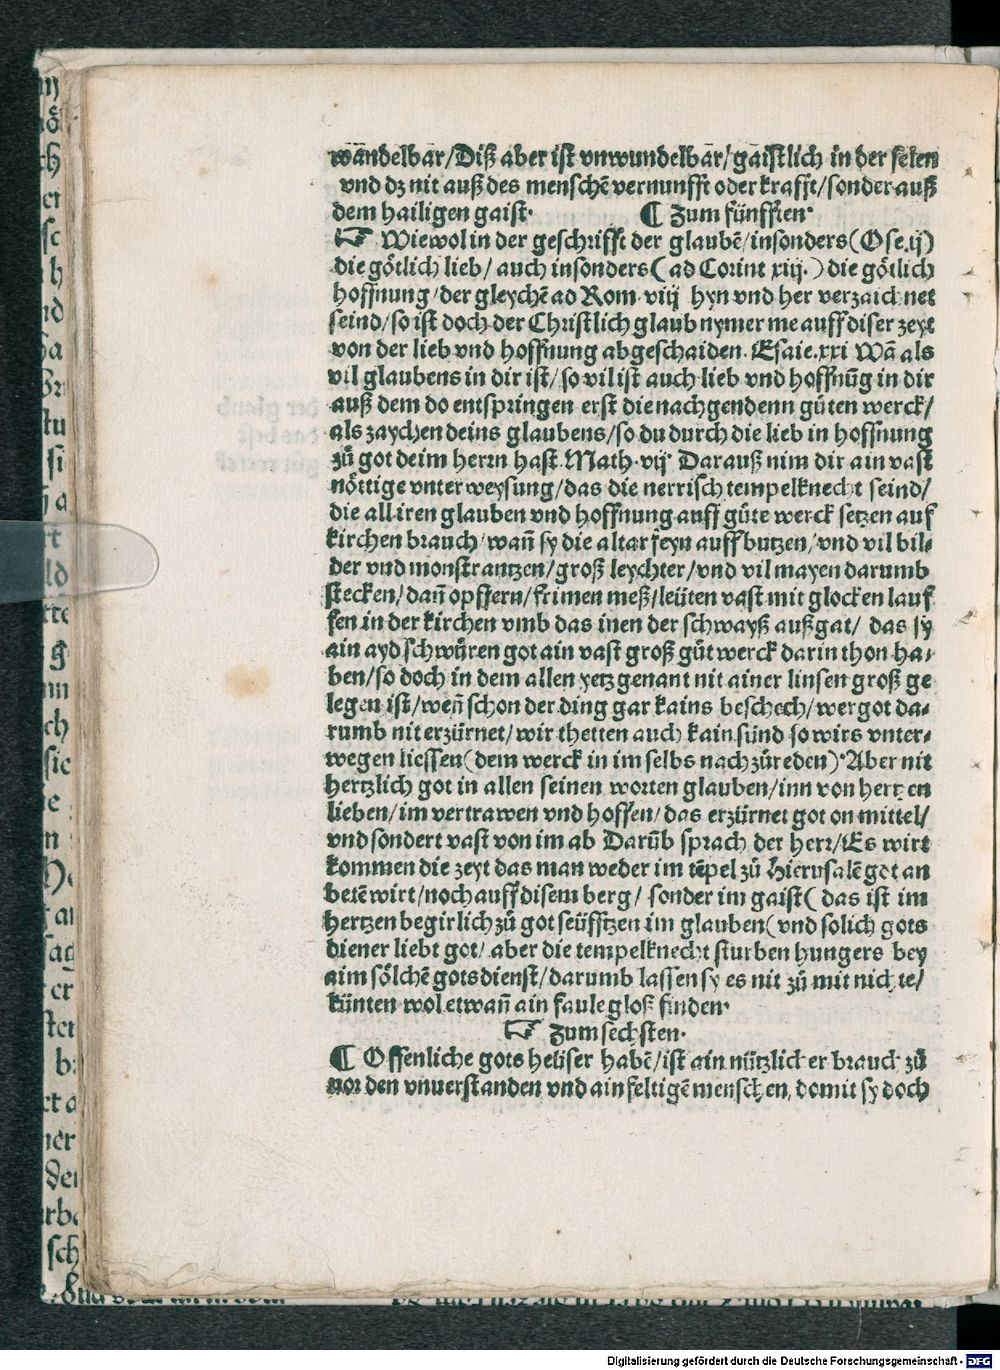 wandelbar/Diß aber ist vnwundelbar/gaistlich in der selen
vnd dz nit auß des menschē vernunfft oder krafft/sonder auß
dem hailigen gaist· ¶ Zum fünfften·
☞ Wiewol in der geschrifft der glaubē/insonders(Ose.ij)
die götlich lieb/auch insonders(ad Corint xiij·)die götlich
hoffnung/der gleychē ad Rom·viij hyn vnd her verzaichnet
seind/so ist doch der Christlich glaub nymer me auff diser zeyt
von der lieb vnd hoffnung abgeschaiden·Esaie.xxi Wā als
vil glaubens in dir ist/so vil ist auch lieb vnd hoffnūg in dir
auß dem do entspringen erst die nachgendenn gůten werck/
als zaychen deins glaubens/so du durch die lieb in hoffnung
zů got deim herrn hast.Math·vij· Darauß nim dir ain vast
nöttige vnterweysung/das die nerrisch tempelknecht seind/
die all iren glauben vnd hoffnung auff gůte werck setzen auf
kirchen brauch/wañ sy die altar feyn auffbutzen/vnd vil bil⸗
der vnd monstrantzen/groß leychter/vnd vil mayen darumb
stecken/dañ opffern/frimen meß/leüten vast mit glocken lauf
fen in der kirchen vmb das inen der schwayß außgat/ das sy
ain ayd schwůren got ain vast groß gůt werck darin thon ha⸗
ben/so doch in dem allen yetz genant nit ainer linsen groß ge
legen ist/weñ schon der ding gar kains beschech/wer got da⸗
rumb nit erzürnet/wir thetten auch kain sünd so wirs vnter⸗
wegen liessen(dem werck in im selbs nach zůreden)·Aber nit
hertzlich got in allen seinen worten glauben/inn von hertzen
lieben/im vertrawen vnd hoffen/das erzürnet got on mittel/
vnd sondert vast von im ab Darūb sprach der herr/Es wirt
kommen die zeyt das man weder im tēpel zů Hierusalē got an
betē wirt/noch auff disem berg/ sonder im gaist(das ist im
hertzen begirlich zů got seüfftzen im glauben(vnd solich gots
diener liebt got/aber die tempelknecht sturben hungers bey
aim sölchē gotsdienst/darumb lassen sy es nit zů mit nichte/
künten wol etwañ ain faule gloß finden·
☞ Zum sechsten·
¶ Offenliche gots heüser habē/ist ain nützlicher brauch zů
nor den vnuerstanden vnd ainfeltigē menschen, domit sy doch
Digitalisierung gefördert durch die Deutsche Forschungsgemeinschaft - DFG